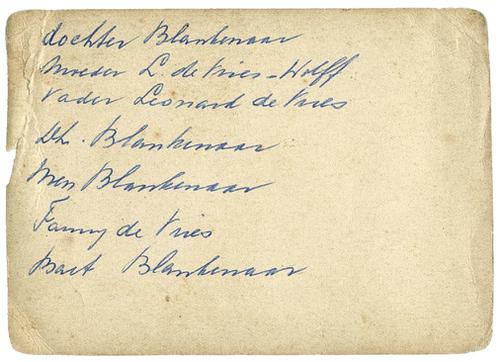 dochter Blankenaar
Moeder L. de Vries-Wolff
Vader Leonard de Vries
Dh. Blankenaar
Mev Blankenaar
Fanny de Vries
Bart Blankenaar